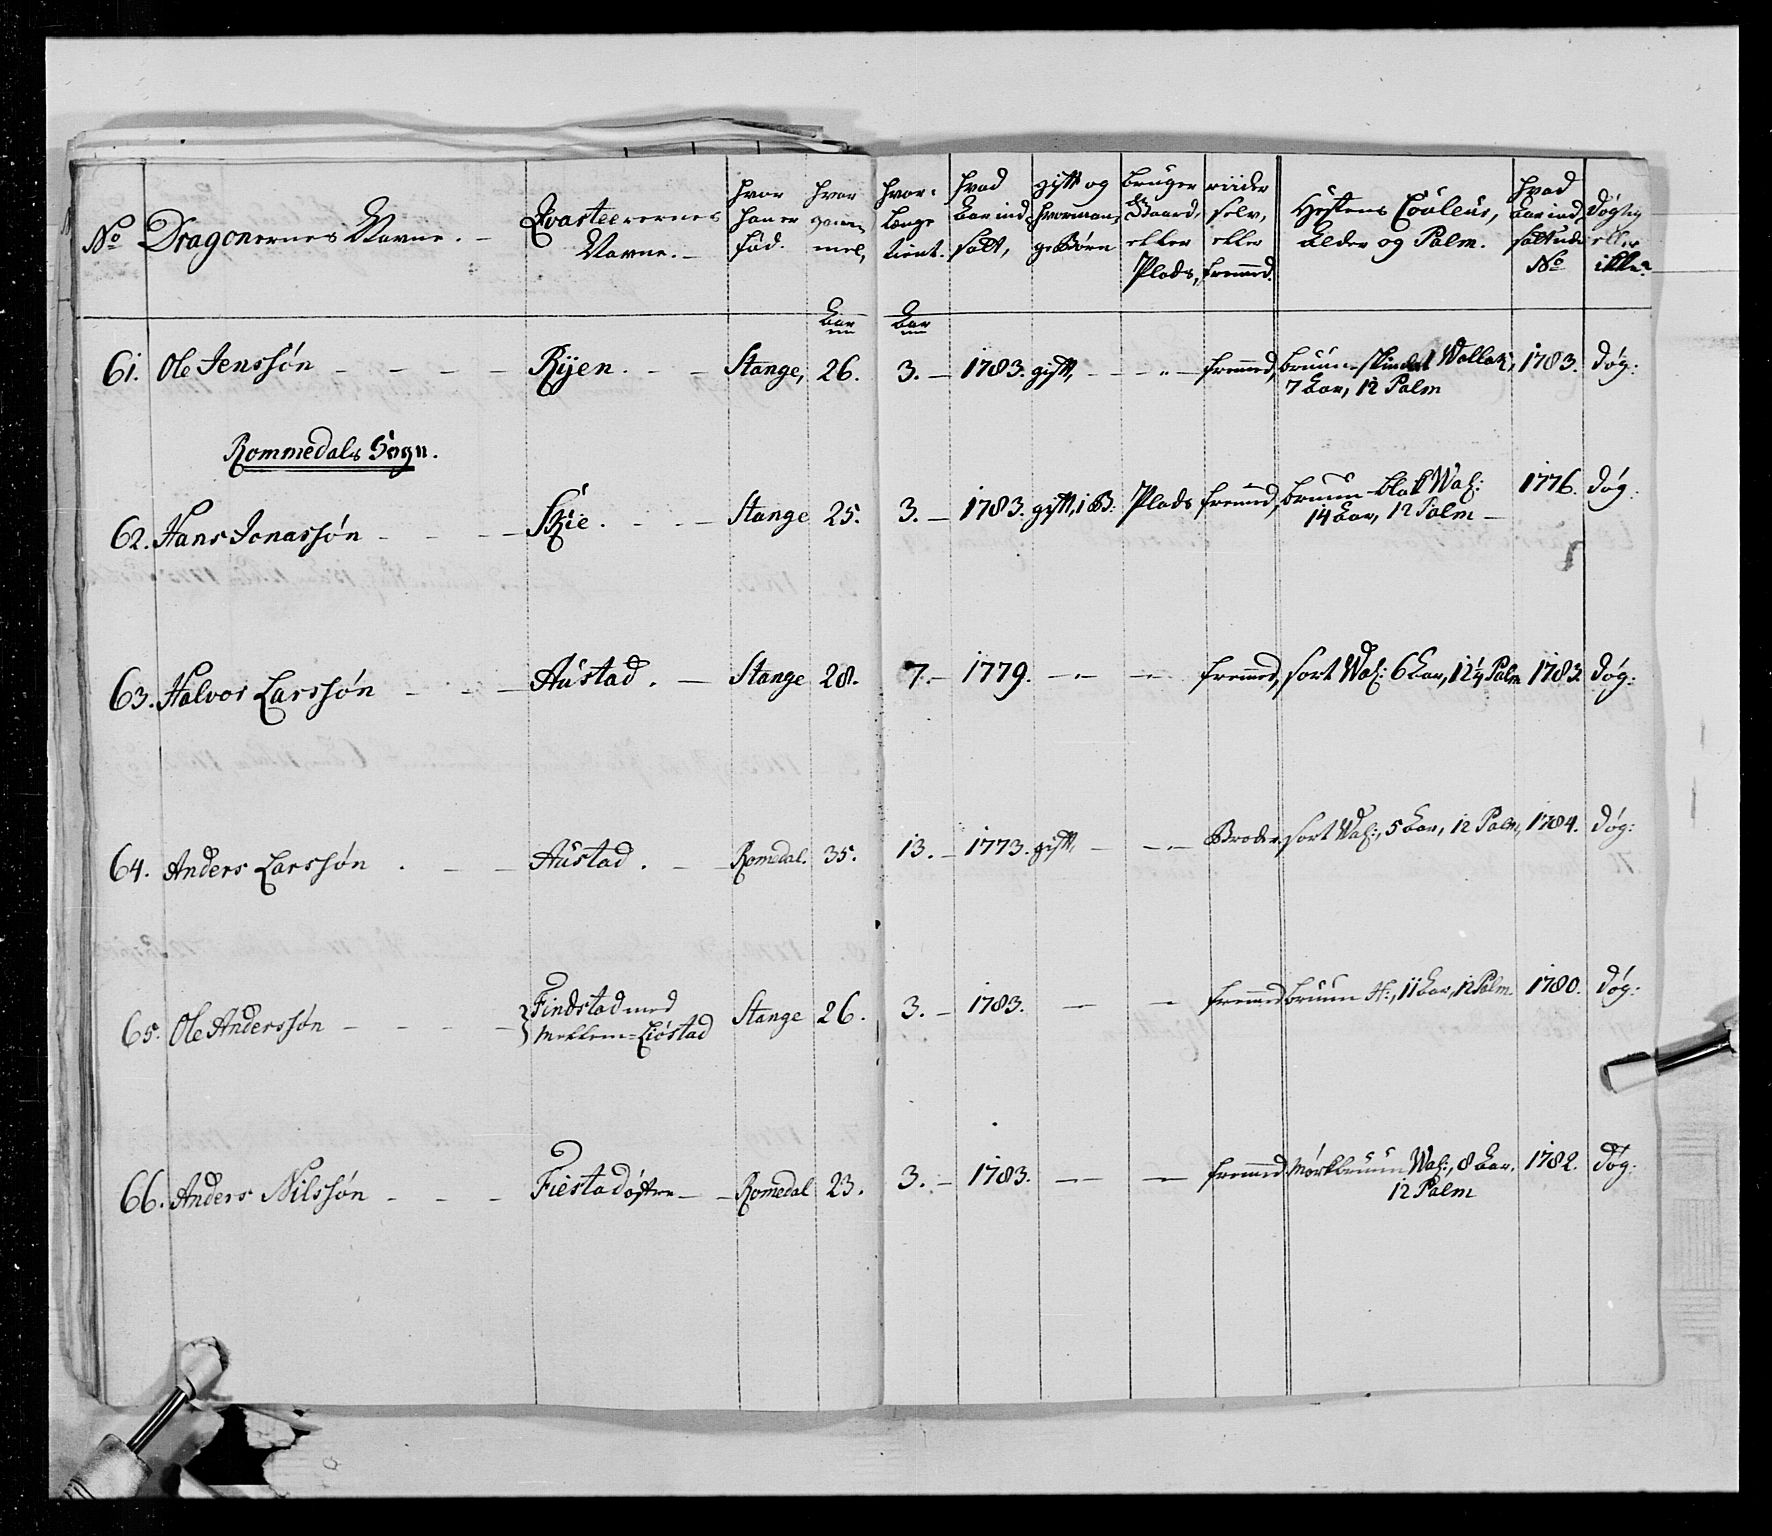 No Dragonernes Navne. Qvarteerernes Navne. hvor han er fød. hvor gammel, hvor-længe tient. hvad Aar ind satt, gift og hvormange Børn bruger Gaard, eller Plads, riider selv, eller fremmed. Hestens Couleur, Alder og Palm. hvad Aar ind satt ude No døgtig eller ikke?
Aar Aar
61. Ole Jenssøn - - - - Rÿen. - - Stange, 26. 3. - 1783. gift, - - " - fremmed, bruun-skimlet Wallak, 1783. døg:
7 Aar, 12 Palm
Rommedals Sogn.
62. Hans Jonassøn - - - - Skie. - - - Stange 25. 3. - 1783. gift, 1 B: Plads fremmed, bruun-blakk Wal: 1776. døg:
14 Aar, 12 Palm -
63. Halvor Larssøn - - - - Austad. - Stange 28. 7. - 1779. - " - - " - fremmed, sort Wal: 6 Aar, 12¼ Palm 1783. døg:
64. Anders Larssøn . - - Austad. - Romedal. 35. 13. - 1773. gift, - - " - Broder, sort Wal:, 5 Aar, 12 Palm, 1784. døg:
65. Ole Anderssøn - - - - Findstad med Stange 26. 3. - 1783. - - fremmed bruun H:, 11 Aar, 12 Palm 1780. døg:
Mellem=Liøstad
66. Anders Nilssøn - - - Fiestad østre - - Romedal 23. 3. - 1783. - - - fremmed Mørkbruun Wal:, 8 Aar. 1782. døg:
12 Palm